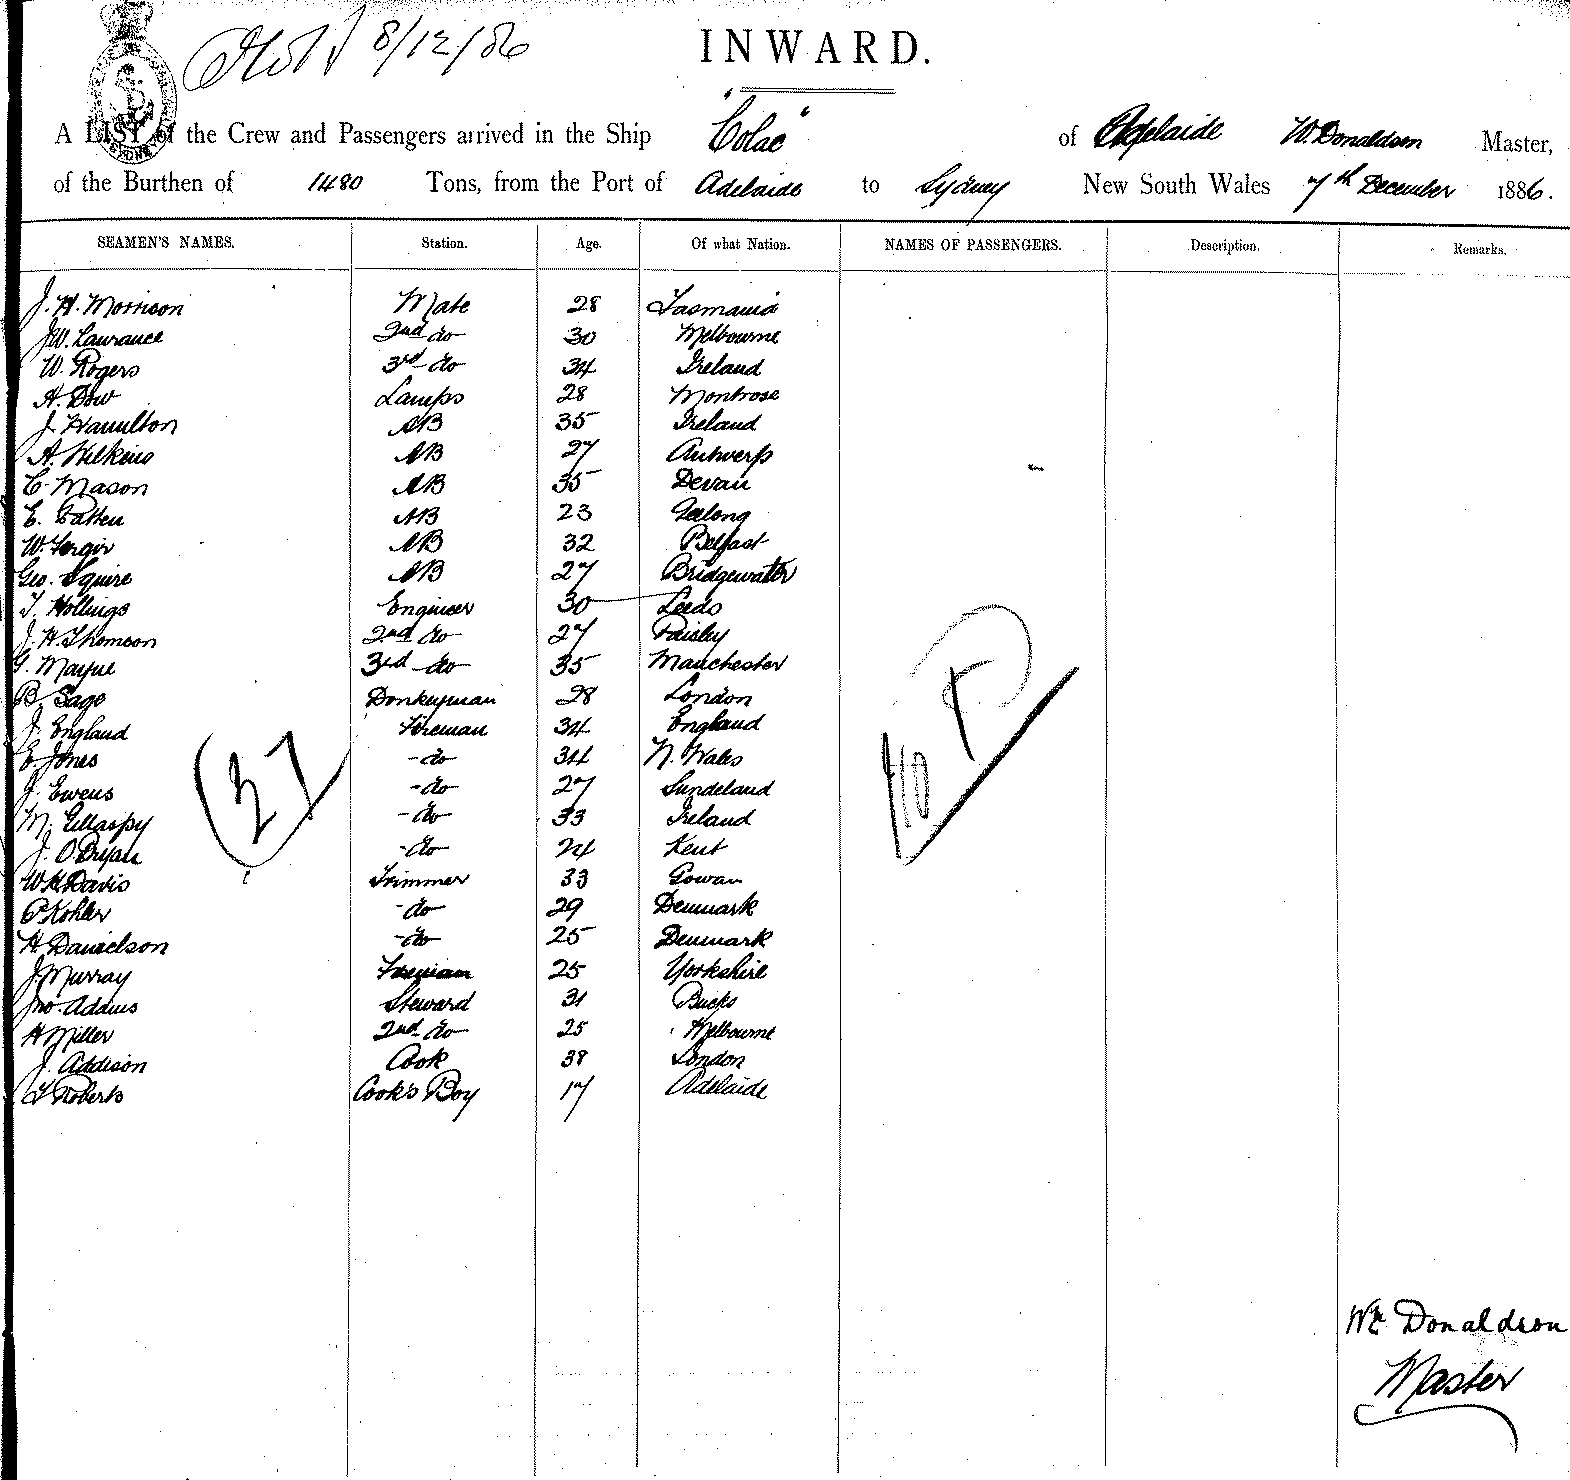 8/12/86
INWARD.
A LIST of the Crew and Passengers arrived in the Ship "Colac" of Adelaide W. Donaldson Master,
of the Burthen of 1480 Tons, from the Port of Adelaide to Sydney New South Wales 7th December 1886.
SEAMEN'S NAMES. Station. Age. Of what Nation. NAMES OF PASSENGERS. Description. Remarks.
J. H. Morrison Mate 28 Tasmania
J.W. Laurance 2nd do 30 Melbourne
W. Rogers 3rd do 34 Ireland
A. Dow Lamps 28 Montrose
J. Hamilton AB 35 Ireland
A. Wilkins AB 27 Antwerp
C. Mason AB 35 Devan
E. Patten AB 23 Geelong
W. AB 32 Belfast
Geo. Squire AB 27 Bridgewater
T. Hollings Engineer 30 Leeds
J. H. Thomson 2nd do 27 Paisley
G. Mayne 3rd do 35 Manchester
B. Sage Donkeyman 28 London
J. England Fireman 34 England
E. Jones - do 34 N. Wales
J. Ewens - do 27 Sundeland
M. Gillaspy - do 33 Ireland
J. O.Bryan - do 24 Kent
W.H. Davis Trimmer 33 Gowan
P Kohler - do 29 Denmark
H. Danielson - do 25 Denmark
J. Murray Fireman 25 Yorkshire
Jno. Addins Steward 31 Bucks
H Miller 2nd do 25 Melbourne
J. Addison Cook 38 London
T Roberts Cook's Boy 17 Adelaide
Wm Donaldson
Master